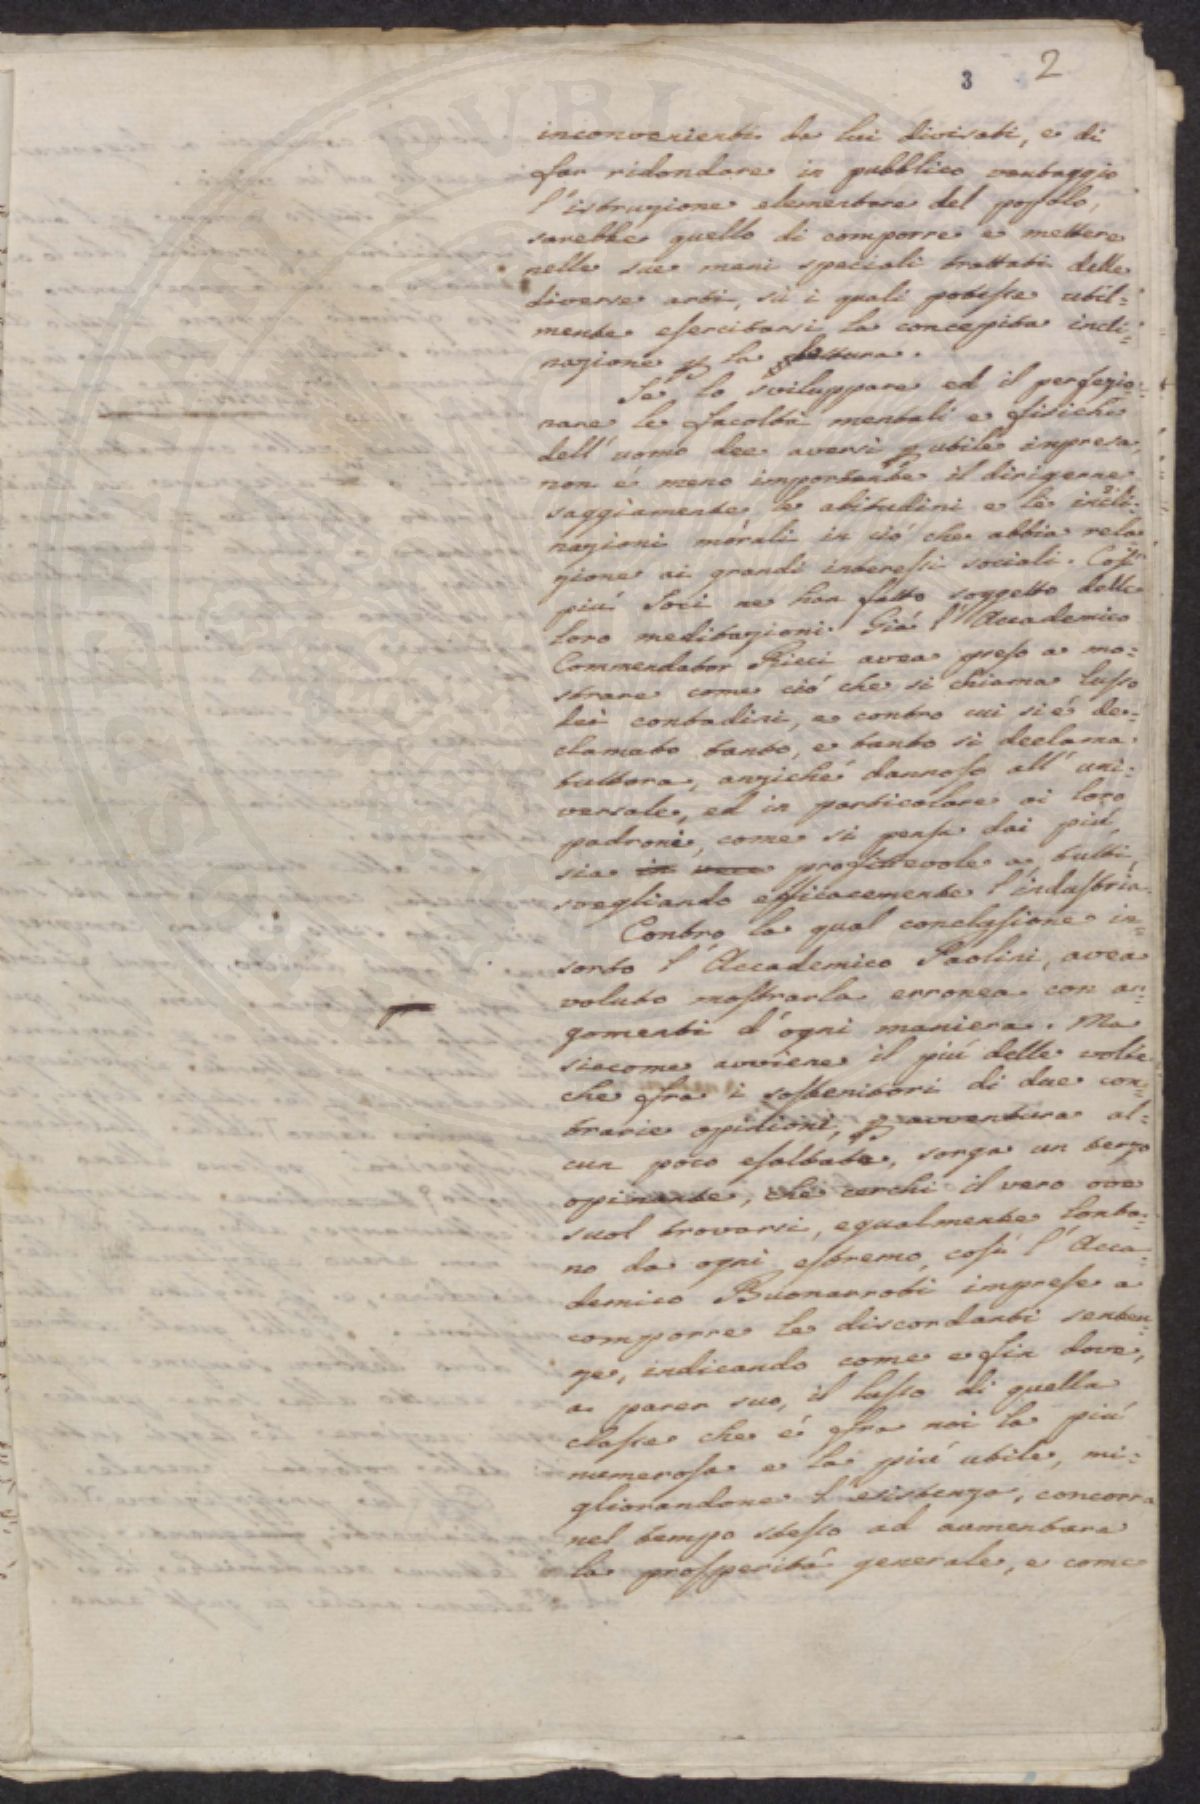 3 2
inconvenienti da lui divisati, e di
far ridondare in pubblico vantaggio
l'istruzione elementare del popolo,
sarebbe quello di comporre e mettere
nelle sue mani speciali trattati delle
diverse arti, sù i quali potesse util=
mente esercitarsi la concepita incli=
nazione p la lettura.
Se lo sviluppare ed il perfezio=
nare le facoltà mentali e fisiche
dell'uomo dee aversi p utile impresa,
non é meno importante il dirigerne
saggiamente le abitudini e le incli=
nazioni morali in ció che abbia rela=
zione ai grandi interessi sociali. Cosí
piú Socj ne han fatto soggetto delle
loro meditazioni. Giá l'Accademico
Commendator Ricci avea preso a mo=
strare come ció che si chiama lusso
dei contadini, e contro cui si é de=
clamato tanto, e tanto si declama
tuttora, anziché dannoso all'uni=
versale, ed in particolare ai loro
padroni, come si pensa dai piú,
sia in vece profittevole a tutti,
svegliando efficacemente l'industria.
Contro la qual conclusione in=
sorto l'Accademico Paolini, avea
voluto mostrarla erronea con ar=
gomenti d'ogni maniera. Ma
siccome avviene il piú delle volte
che fra i sostenitori di due con=
trarie opinioni, p avventura al=
cun poco esaltate, sorga un terzo
opinante, che cerchi il vero ove
suol trovarsi, egualmente lonta=
no da ogni estremo, cosí l'Acca=
demico Buonarroti imprese a
comporre le discordanti senten=
ze, indicando come e fin dove,
a parer suo, il lusso di quella
classe che é fra noi la piú
numerosa e la piú utile, mi=
gliorandone l'esistenza, concorra
nel tempo stesso ad aumentare
la prosperitá generale, e come